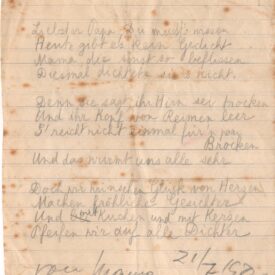 Liebster Papa, Du musst wissen
Heute gibt es kein Gedicht
Mama die sonst so beflissen
Diesmal dichtete sie's nicht.
Denn sie sagt ihr Hirn sei trocken
Und ihr Kopf von Reimen leer
S'reicht nicht einmal für 'n paar
Brocken
Und das wurmt uns alle sehr
Doch wir wünschen Glück von Herzen
Machen fröhliche Gesichter
Und bei Kuchen und mit Kerzen
Pfeifen wir auf alle Dichter
21/7
von Mama